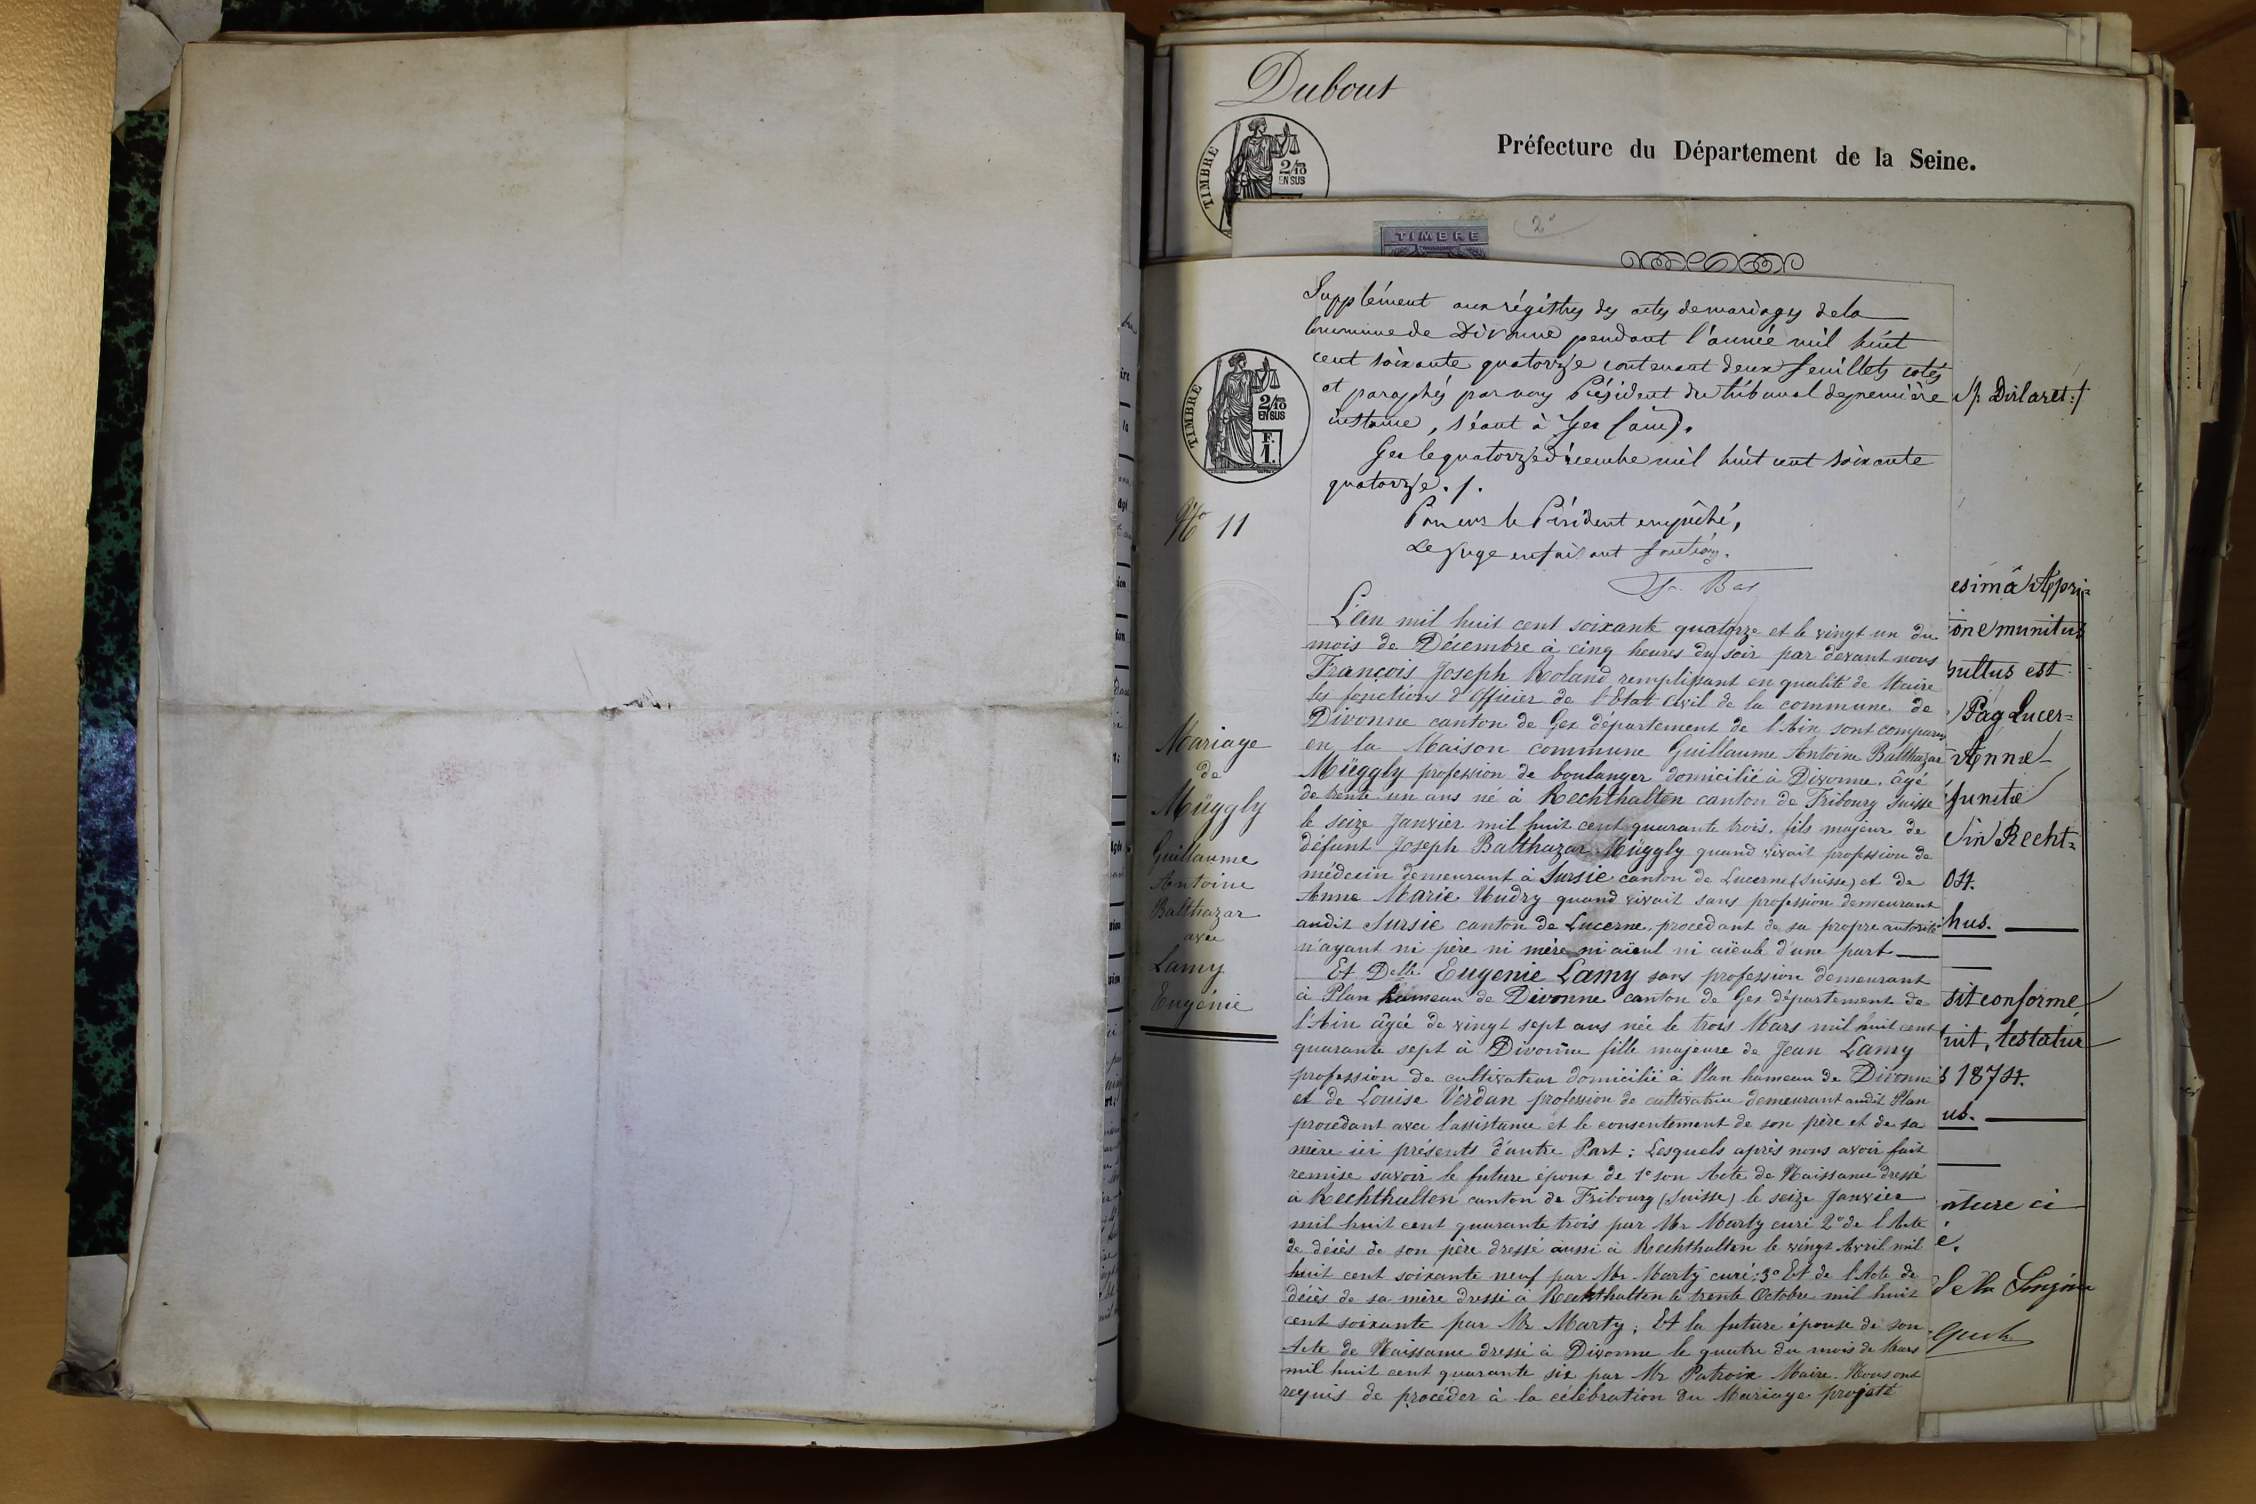 Dubout
TIMBRE
2/10
EN SUS
Préfecture du Département de la Seine.
TIMBRE
2°
Supplément aux régistres des actes de mariages de la
Commune de Divonne pendant l'année mil huit
cent soixante quatorze contenant deux feuillets cotés
et paraphés par nous Président du tribunal de première
instance, séant à Gex (ain).
Gex le quatorze décembre mil huit cent soixante
quatorze ./.
Pour le Président empêché,
Le Juge enfaisant fonctions.
Bas
TIMBRE
2/10
EN SUS
F.
1.
No 11
Mariage
de
Müggly
Guillaume
Antoine
Balthazar
avec
Lamy
Eugénie
L'an mil huit cent soixante quatorze et le vingt un du
mois de Décembre à cinq heures du soir par devant nous
François Joseph Roland remplissant en qualité de Maire
les fonctions d'Officier de l'Etat civil de la commune de
Divonne canton de Gex département de l'Ain sont comparus
en la Maison commune Guillaume Antoine Balthazar
Müggly profession de boulanger domicilié à Divonne, âgé
de trente un ans né à Rechthalten canton de Fribourg Suisse
le seize Janvier mil huit cent quarante trois, fils majeur de
défunt Joseph Balthazar Müggly quand vivait profession de
médecin demeurant à Sursie canton de Lucerne (Suisse) et de
Anne Marie Uudry quand vivait sans profession demeurant
audit Sursie canton de Lucerne, procédant de sa propre autorité
n'ayant ni père ni mère ni aïeul ni aïeule d'une part
Et Delle Eugénie Lamy sans profession demeurant
à Plan hameau de Divonne canton de Gex département de
l'Ain âgée de vingt sept ans née le trois Mars mil huit cent
quarante sept à Divonne fille majeure de Jean Lamy
profession de cultivateur domicilié à Plan hameau de Divonne
et de Louise Verdan profession de cultivatrice demeurant audit Plan
procédant avec l'assistance et le consentement de son père et de sa
mère ici présents d'autre Part : Lesquels après nous avoir fait
remise savoir le future époux de 1° son Acte de Naissance dressé
à Rechthalten canton de Fribourg (Suisse) le seize Janvier
mil huit cent quarante trois par Mr Marty curé 2° de l'Acte
de décès de son père dressé aussi à Rechthalten le vingt Avril mil
huit cent soixante neuf par Mr Marty curé; 3° Et de l'Acte de
décès de sa mère dressé à Rechthalten le trente Octobre mil huit
cent soixante par Mr Marty; Et la future épouse de son
Acte de Naissance dressé à Divonne le quatre du mois de Mars
mil huit cent quarante six par Mr Patroix Maire. Nous ont
requis de procéder à la célébration du Mariage projeté
Dirlaret :/
esimâ Apri=
one munitus
pultus est
Pag Lucer=
Annæ
funitæ
in Recht=
04.
hus.
sit conforme
uit, testatur
1874.
us.
ature ci
é.